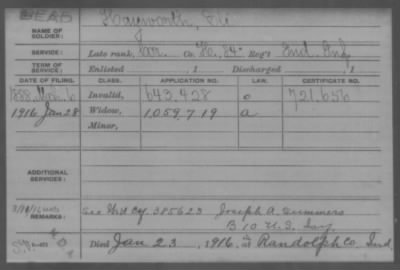 DEAD
NAME OF SOLDIER: Hayworth, Eli
SERVICE: Late rank, Co. 84" Reg't Ind. Inf.
TERM OF SERVICE: Enlisted , 1 Discharged , 1
DATE OF FILING. CLASS. APPLICATION NO. LAW. CERTIFICATE NO.
1888 Mar. 6 Invalid, 643.428 721.656
1916 Jan 28 Widow, 1.059.719 a
Minor,
ADDITIONAL SERVICES:
REMARKS: See 385623 Joseph A. Summers
B 10 U.S. Inf.
Died Jan 23, 1916, at Randolph Co. Ind.